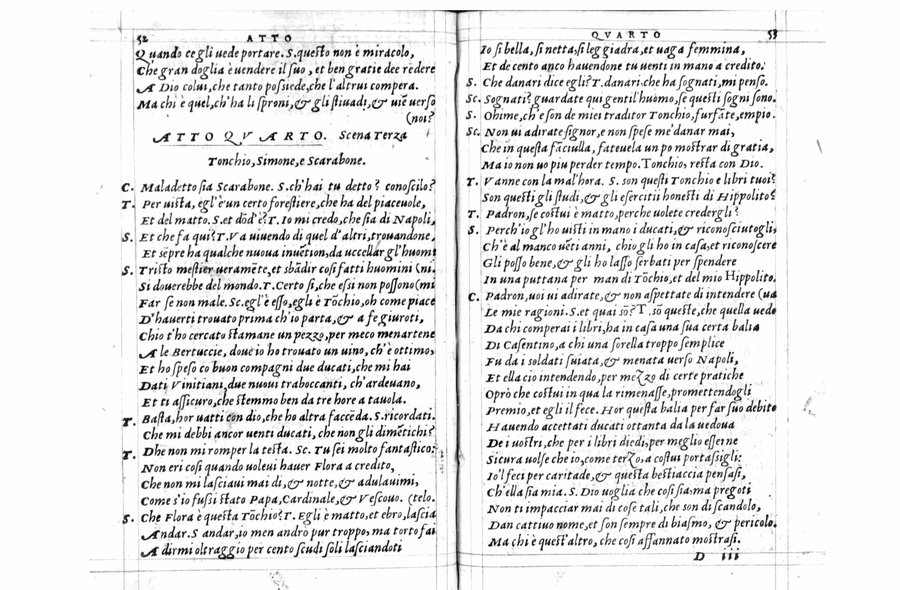 52 ATTO
Quando cegli uede portare. S. questo non è miracolo,
Che gran doglia è uendere il suo, et ben gratie dee rēdere
A Dio colui, che tanto possiede, che l'altrui compera.
Ma chi è quel, ch'ha li sproni, & gli stiuadi, & uiē uerso
(noi?
ATTO QVARTO. Scena Terza
Tonchio, Simone, e Scarabone.
C. Maladetto sia Scarabone. S. ch'hai tu detto? conoscilo?
T. Per uista, egl'è un certo forestiere, che ha del piaceuole,
Et del matto. S. et dōd'è? T. Io mi credo, che sia di Napoli,
S. Et che fa qui? T. Va uiuendo di quel d'altri, trouandone,
Et sēpre ha qualche nuoua inuētion, da uccellar gl'huomi
S. Tristo mestier ueramēte, et sbādir cosi fatti huomini (ni.
Si douerebbe del mondo. T. Certo si, che essi non possono (mi
Far se non male. Sc. egl'è esso, egli è Tōchio, oh come piace
D'hauerti trouato prima ch'io parta, & a fe giuroti,
Chio t'ho cercato stamane un pezzo, per meco menartene
A le Bertuccie, doue io ho trouato un uino, ch'è ottimo,
Et ho speso co buon compagni due ducati, che mi hai
Dati Vinitiani, due nuoui traboccanti, ch'ardeuano,
Et ti assicuro, che stemmo ben da tre hore a tauola.
T. Basta, hor uatti con dio, che ho altra faccēda. S. ricordati.
Che mi debbi ancor uenti ducati, che non gli dimētichi?
T. Dhe non mi romper la testa. Sc. Tu sei molto fantastico:
Non eri cosi quando uoleui hauer Flora a credito,
Che non mi lasciaui mai di, & notte, & adulauimi,
Come s'io fussi stato Papa, Cardinale, & Vescouo. (telo.
S. Che Flora è questa Tōchio? T. Egli è matto, et ebro, lascia
Andar. S andar, io men andrò pur troppo, ma torto fai
A dirmi oltraggio per cento scudi soli lasciandoti
QVARTO 53
Io si bella, si netta, si leggiadra, et uaga femmina,
Et de cento anco hauendone tu uenti in mano a credito.
S. Che danari dice egli? T. danari che ha sognati, mi penso.
Sc. Sognati? guardate qui gentil'huomo, se questi sogni sono.
S. Ohime, ch'e son de miei traditor Tonchio, furfāte, empio.
Sc. Non ui adirate signor, e non spese me'danar mai,
Che in questa fāciulla, fateuela un po mostrar di gratia,
Ma io non uo piu perder tempo. Tonchio, resta con Dio.
T. Vanne con la mal'hora. S. son questi Tonchio e libri tuoi?
Son questi gli studi, & gli esercitii honesti di Hippolito?
T. Padron, se costui è matto, perche uolete credergli?
S. Perch'io gl'ho uisti in mano i ducati, & riconosciutogli,
Ch'è al manco uēti anni, chio gli ho in casa, et riconoscere
Gli posso bene, & gli ho lasso serbati per spendere
In una puttana per man di Tōchio, et del mio Hippolito.
C. Padron, uoi ui adirate, & non aspettate di intendere (ua
Le mie ragioni. S. et quai sō? T. sō queste, che quella uedo
Da chi comperai i libri, ha in casa una sua certa balia
Di Casentino, a chi una sorella troppo semplice
Fu da i soldati suiata, & menata uerso Napoli,
Et ella cio intendendo, per mezzo di certe pratiche
Oprò che costui in qua la rimenasse, promettendogli
Premio, et egli il fece. Hor questa balia per far suo debito
Hauendo accettati ducati ottanta da la uedoua
De i uostri, che per i libri diedi, per meglio esserne
Sicura uolse che io, come terzo, a costui portassigli:
Io'l feci per caritade, & questa bestiaccia pensasi,
Ch'ella sia mia. S. Dio uoglia che cosi sia: ma pregoti
Non ti impacciar mai di cose tali, che son di scandolo,
Dan cattiuo nome, et son sempre di biasmo, & pericolo.
Ma chi è quest'altro, che cosi affannato mostrasi.
D iii